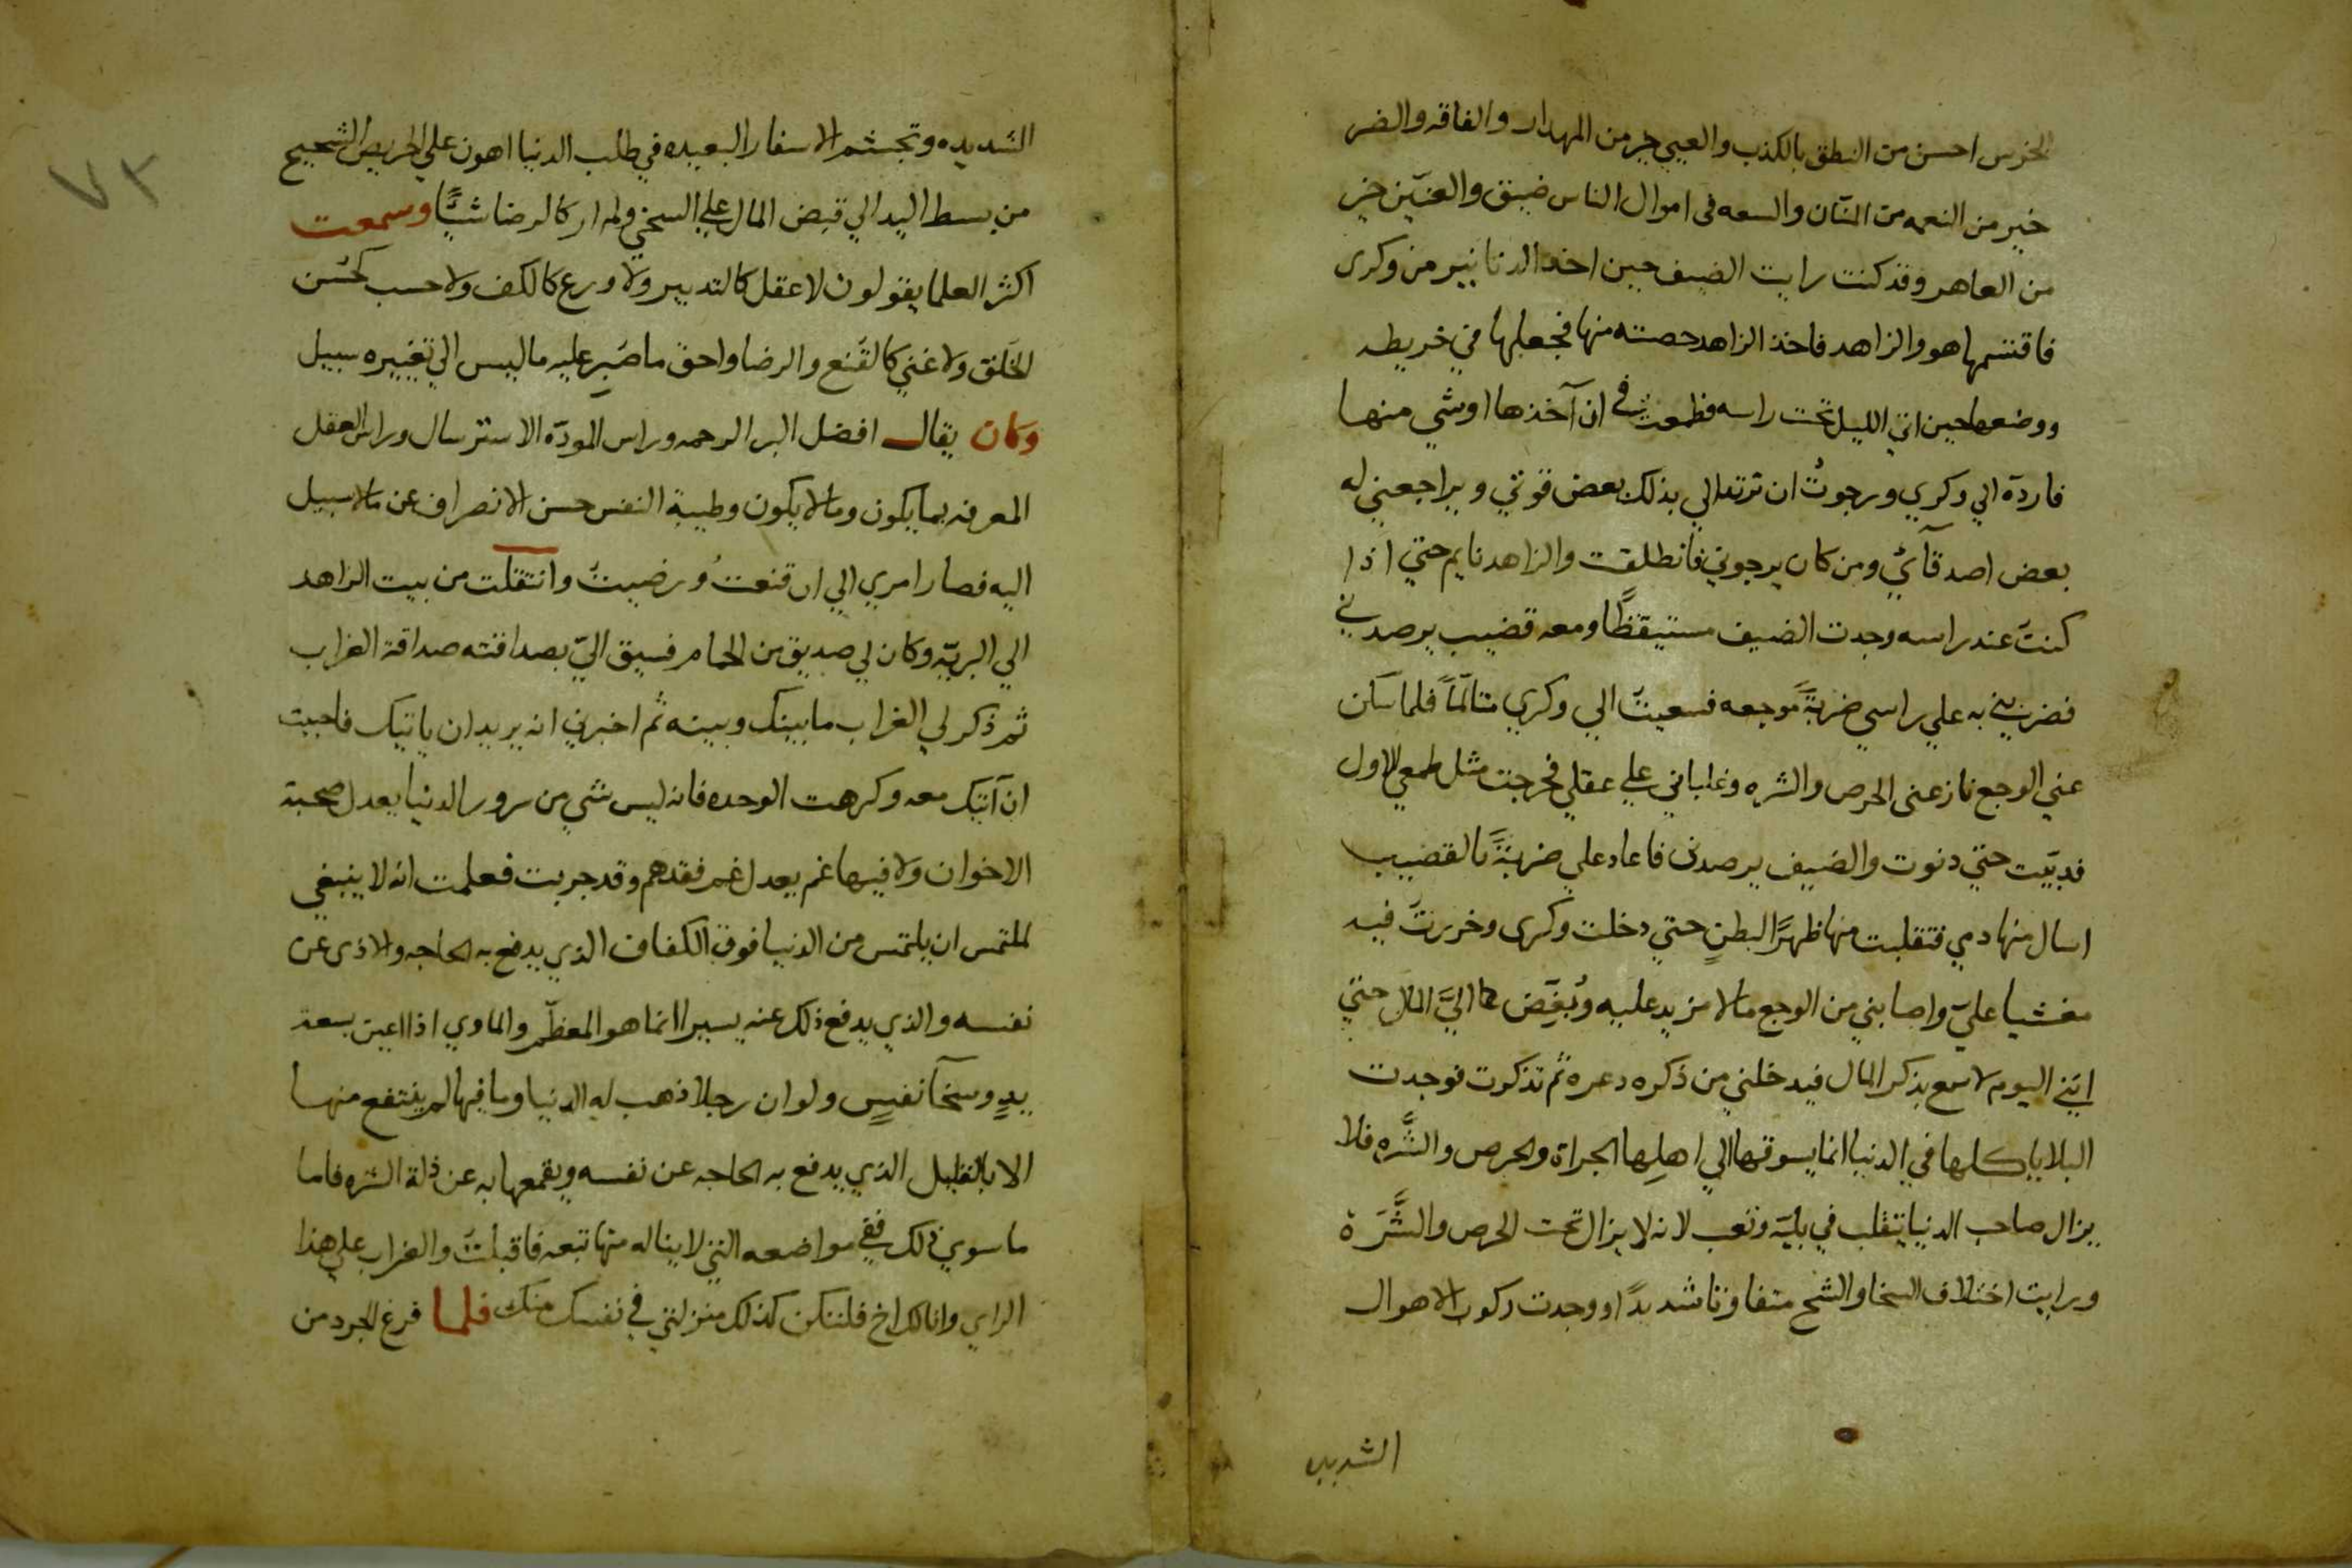 الخرس احسن من النطق بالكذب والعيي خير من المهدار والفاقه والضر
خير من النعمه من المنّان والسعه فى اموال الناس ضيق والعنّين خير
من العاهر وقد كنت رايت الضيف حين اخذ الدنانير من وكرى
فاقتسمها هو والزاهد فاخذ الزاهد حصته منها فجعلها في خريطه
ووضعها حين اتي الليل تحت راسه فطمعت في ان آخذها اوشي منها
فاردّه الي وكري ورجوتُ ان ترتد الي بذلك بعض قوتي ويراجعني له
بعض اصدقآئي ومن كان يرجوني فانطلقت والزاهد نايم حتي اذا
كنت عند راسه وجدت الضيف مستيقظًا ومعه قضيب يرصدني
فضربني به علي راسي ضربةً موجعه فسعيت الي وكري متالمّاً فلما سكن
عني الوجع نازعنى الحرص والشره وغلباني علي عقلي فخرجت مثل طمعي الاول
فدبّيت حتي دنوت والضيف يرصدنى فاعاد علي ضربةً بالقضيب
اسال منها دمي فتقلبت منها ظهرًا لبطنٍ حتي دخلت وكرى وخررت فيه
مغشيا عليّ واصابني من الوجع مالا مزيد عليه وبُغِّض الىَّ المال حتي
انني اليوم لاسمع بذكر المال فيدخلني من ذكره دعره ثم تذكرت فوجدت
البلايا كلها في الدنيا انما يسوقها الي اهلها الجراة والحرص والشَّره فلا
يزال صاحب الدنيا يتقلب في بليّه وتعب لانه لا يزال تحت الحرص والشَّرَة
ورايت اختلاف السخا والشح متفاوتا شديدًا ووجدت ركوب الاهوال
الشديده
٧٣
الشديده وتجشم الاسفار البعيده في طلب الدنيا اهون علي الحريص الشحيح
من بسط اليد الي قبض المال علي السخي ولم ار كالرضا شيًّا وسمعت
اكثر العلما يقولون لا عقل كالتدبير ولا ورع كالكف ولا حسب كحُسن
الخَلق ولا غني كالقَنع والرضا واحق ما صُبِر عليه ما ليس الي تغييره سبيل
وكان يقال افضل البر الرحمه وراس المودّه الاسترسال وراس العقل
المعرفه بما يكون وما لا يكون وطيبة النفس حسن الانصراف عن ما لا سبيل
اليه فصار امري الي ان قنعتُ ورضيتُ وانتقلت من بيت الزاهد
الي البريّه وكان لي صديق من الحمام فسيق اليّ بصداقته صداقة الغراب
ثم ذكر لي الغراب ما بينك وبينه ثم اخبرني انه يريد ان ياتيك فاحببت
ان آتيك معه وكرهت الوحده فانه ليس شي من سرور الدنيا يعدل صحبة
الاخوان ولا فيها غم يعدل غم فقدهم وقد جربت فعلمت انه لا ينبغي
لملتمس ان يلتمس من الدنيا فوق الكفاف الذي يدفع به الحاجه والاذى عن
نفسه والذي يدفع ذلك عنه يسيرا انما هو المطعم والماوي اذا اعين بسعة
يدٍ وسخآ نفسٍ ولو ان رجلا ذهب له الدنيا وما فيها لم ينتفع منها
الا بالقليل الذي يدفع به الحاجه عن نفسه ويقمعها به عن ذلة الشره فاما
ما سوي ذلك ففي مواضعه التي لا يناله منها تبعه فاقبلتُ والغراب علي هذا
الراي وانا لك اخ فلتكن كذلك منزلتي في نفسك منك فلما فرغ الجرد من